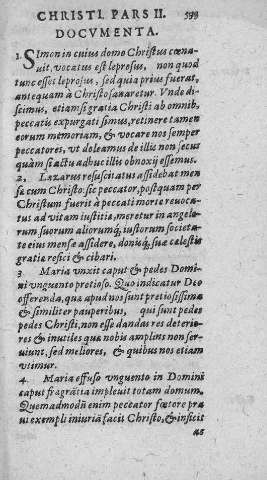 CHRISTI. PARS II. 599
DOCVMENTA.
1. SImon in cuius domo Christus cœna-
uit, vocatus est leprosus, non quod
tunc esset leprosus, sed quia prius fuerat,
antequam à Christo sanaretur. Vnde di-
scimus, etiamsi gratia Christi ab omnib.
peccatis expurgati simus, retinere tamen
eorum memoriam, & vocare nos semper
peccatores, vt doleamus de illis non secus
quàm si actu adhuc illis obnoxij essemus.
2. Lazarus resuscitatus assidebat men
sæ cum Christo: sic peccator, postquam per
Christum fuerit à peccati morte reuoca-
tus ad vitam iustitiæ, meretur in angelo-
rum, suorum aliorumq; iustorum societa-
te eius mensæ assidere, doniq; suæ cælestis
gratiæ refici & cibari.
3. Maria vnxit caput & pedes Domi-
ni vnguento pretioso. Quo indicatur Deo
offerenda, quæ apud nos sunt pretiosissima
& similiter pauperibus, qui sunt pedes
pedes Christi, non esse dandas res deterio-
res & inutiles quæ nobis amplius non ser-
uiunt, sed meliores, & quibus nos etiam
vtimur.
4. Maria effuso vnguento in Domini
caput fragrãtia impleuit totam domum.
Quemadmodũ enim peccator fœtore pra
ui exempli iniuriã facit Christo, & inficit